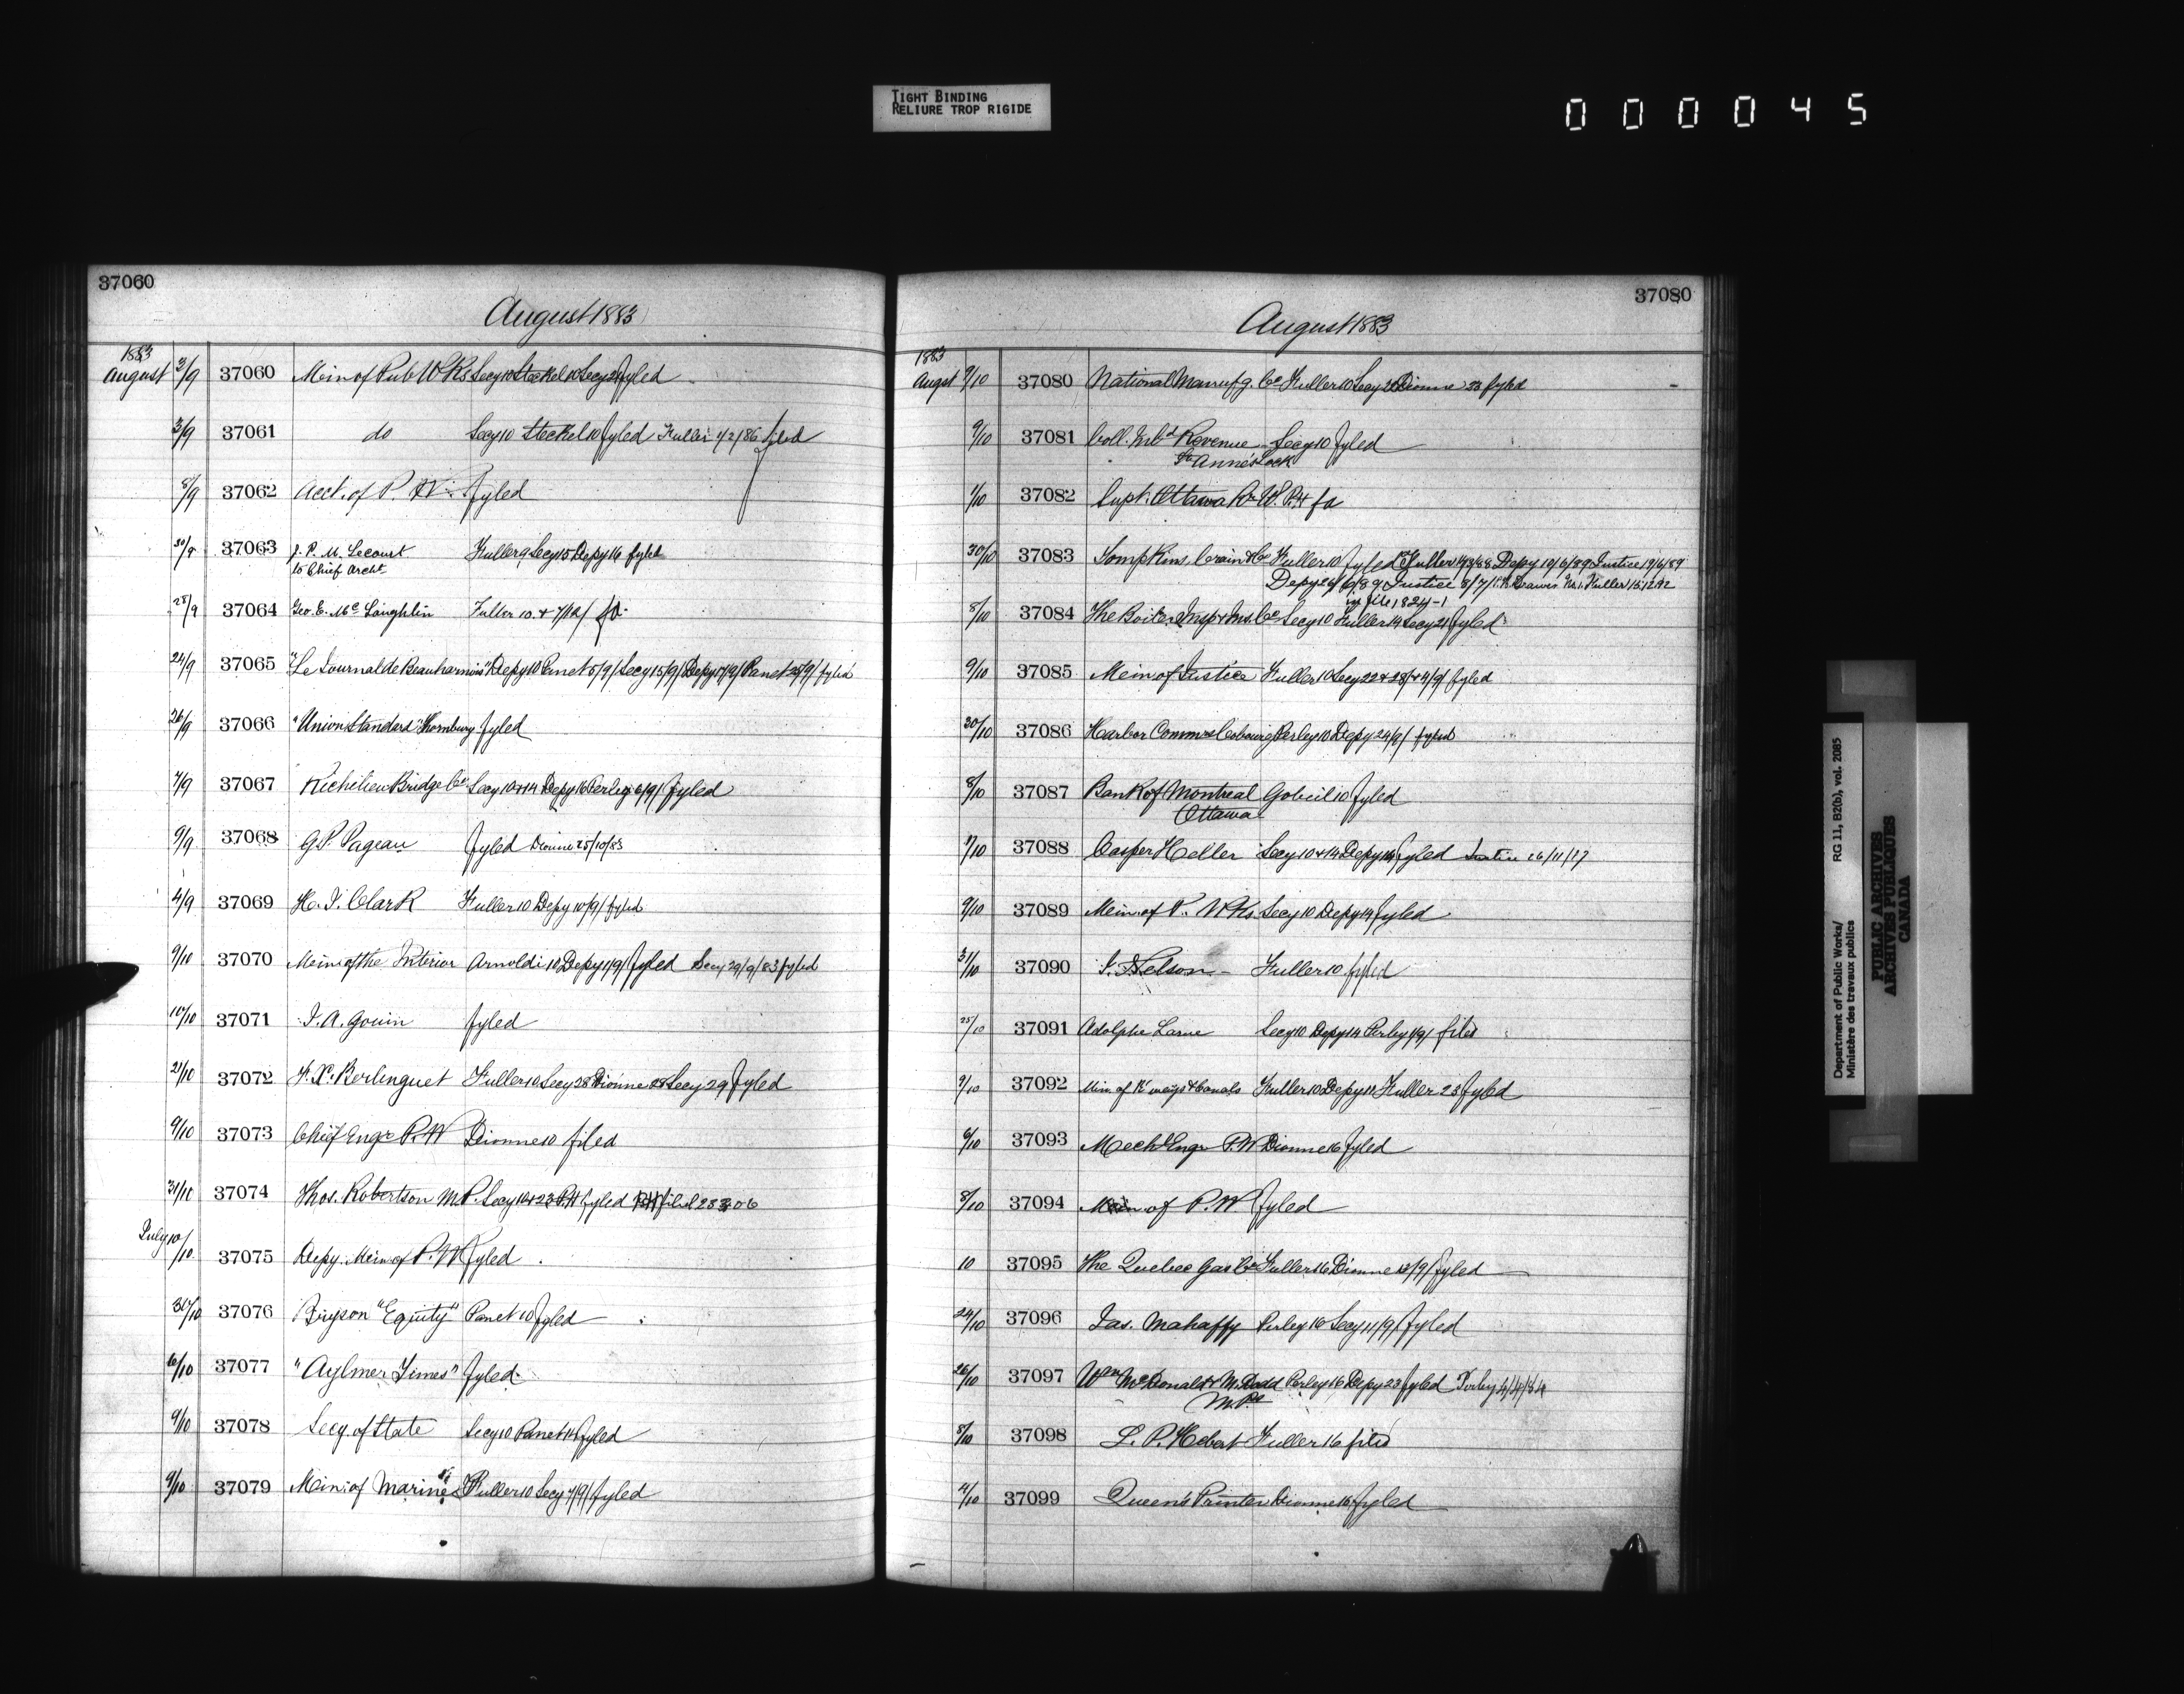 TIGHT BINDING
RELIURE TROP RIGIDE
000045
37060
August 1883
1883
August 3/9 37060 Min of Pub WKs Secy 10 Steckel 10 Secy fyled
3/9 37061 do Secy 10 Steckel 10 fyled Fuller 4/2/86 filed
8/9 37062 Acct. of P. W. fyled
30/9 37063 J. P. M. Lecourt Fuller 9 Secy 15 Depy 16 fyled
to Chief Archt
28/9 37064 Geo. E. McLaughlin Fuller 10 + 7/12/ fd
24/9 37065 "Le Journal de Beauharnois" Depy 10 Panet 5/9/ Secy 15/9/ Depy 17/9/ Panet 25/9/ fyled
26/9 37066 "Union Standard" Thornbury fyled
7/9 37067 Richelieu Bridge Co Secy 10+14 Depy 16 Perley 6/9/ fyled
9/9 37068 G. P. Pageau fyled Dionne 25/10/83
4/9 37069 H. J. Clark Fuller 10 Depy 10/9/ fyled
9/10 37070 Min of the Interior Arnoldi 10 Depy 1/9/ fyled Secy 29/9/83 fyled
10/10 37071 J. A. Gouin fyled
21/10 37072 F. X. Berlinguet Fuller 10 Secy 28 Dionne 28 Secy 29 fyled
9/10 37073 Chief Engr P.W Dionne 10 filed
31/10 37074 Thos. Robertson M.P. Secy 10+23 P.H fyled filed 23 3 06
July 10/10 37075 Depy. Min of P.W fyled
31/10 37076 Bryson "Equity" Panet 10 fyled
6/10 37077 "Aylmer Times" fyled
9/10 37078 Secy. of State Secy 10 Panet 14 fyled
9/10 37079 Min: of Marine Fuller 10 Secy 7/9/ fyled
37080
August 1883
1883
Augst 9/10 37080 National Manufg. Co Fuller 10 Secy Dionne 23 fyled
9/10 37081 Coll. Revenue Secy 10 fyled
Ste Anne's Lock
1/10 37082 Supt. Ottawa Rr W. P.H fd
30/10 37083 Tompkins, Crain & Co Fuller 10 fyled Fuller 14/3/88 Depy 10/6/89 Justice 19/6/89
Depy 26/6/89 Justice 8/7/ Mr. Fuller 15/12/92
in file 1824-1
8/10 37084 The Boiler Insp & Ins. Co Secy 10 Fuller 14 Secy 21 fyled
9/10 37085 Min of Justice Fuller 10 Secy 22+28/+4/9/ fyled
30/10 37086 Harbor Commrs Cobourg Perley 10 Depy 24/9/ fyled
8/10 37087 Bank of Montreal Gobeil 10 fyled
Ottawa
7/10 37088 Casper Heller Secy 10+14 Depy 14 fyled Justice 26/11/17
9/10 37089 Min. of P. WKs Secy 10 Depy 14 fyled
31/10 37090 Nelson Fuller 10 fyled
25/10 37091 Adolphe Larue Secy 10 Depy 14 Perley 1/9/ filed
9/10 37092 Min. of R'ways & Canals Fuller 10 Depy 11 Fuller 23 fyled
6/10 37093 Mechl Engr P.W Dionne 16 fyled
8/10 37094 Min. of P.W fyled
10 37095 The Quebec Gas Co Fuller 16 Dionne 12/9/ fyled
24/10 37096 Jas. Mahaffy Perley 16 Secy 11/9/ fyled
26/10 37097 Wm McDonald & M. Dodd Perley 16 Depy 23 fyled Perley 4/4/84
M.Ps
8/10 37098 L. P. Hebert Fuller 16 filed
4/10 37099 Queen's Printer Dionne 16 fyled
Department of Public Works/ RG 11, B2(b), vol. 2085
Ministère des travaux publics
PUBLIC ARCHIVES
ARCHIVES PUBLIQUES
CANADA